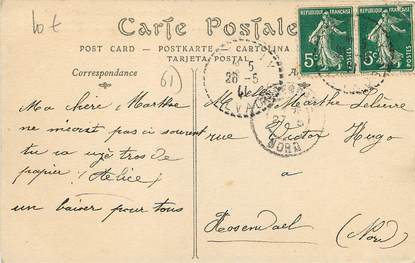 10 f
Carte Postale
POST CARD — POSTKARTE — CARTOLINA
TARJETA POSTAL
RÉPUBLIQUE FRANÇAISE
5c
POSTES
RÉPUBLIQUE FRANÇAISE
5c
POSTES
26-5
Correspondance
61
NORD
Ma chère Marthe
ne m'écrit pas si souvent
tu va usé tros de
papier (Alice)
un baiser pour tous
Melle Marthe Lelièvre
rue Victor Hugo
a
Rosendael (Nord)